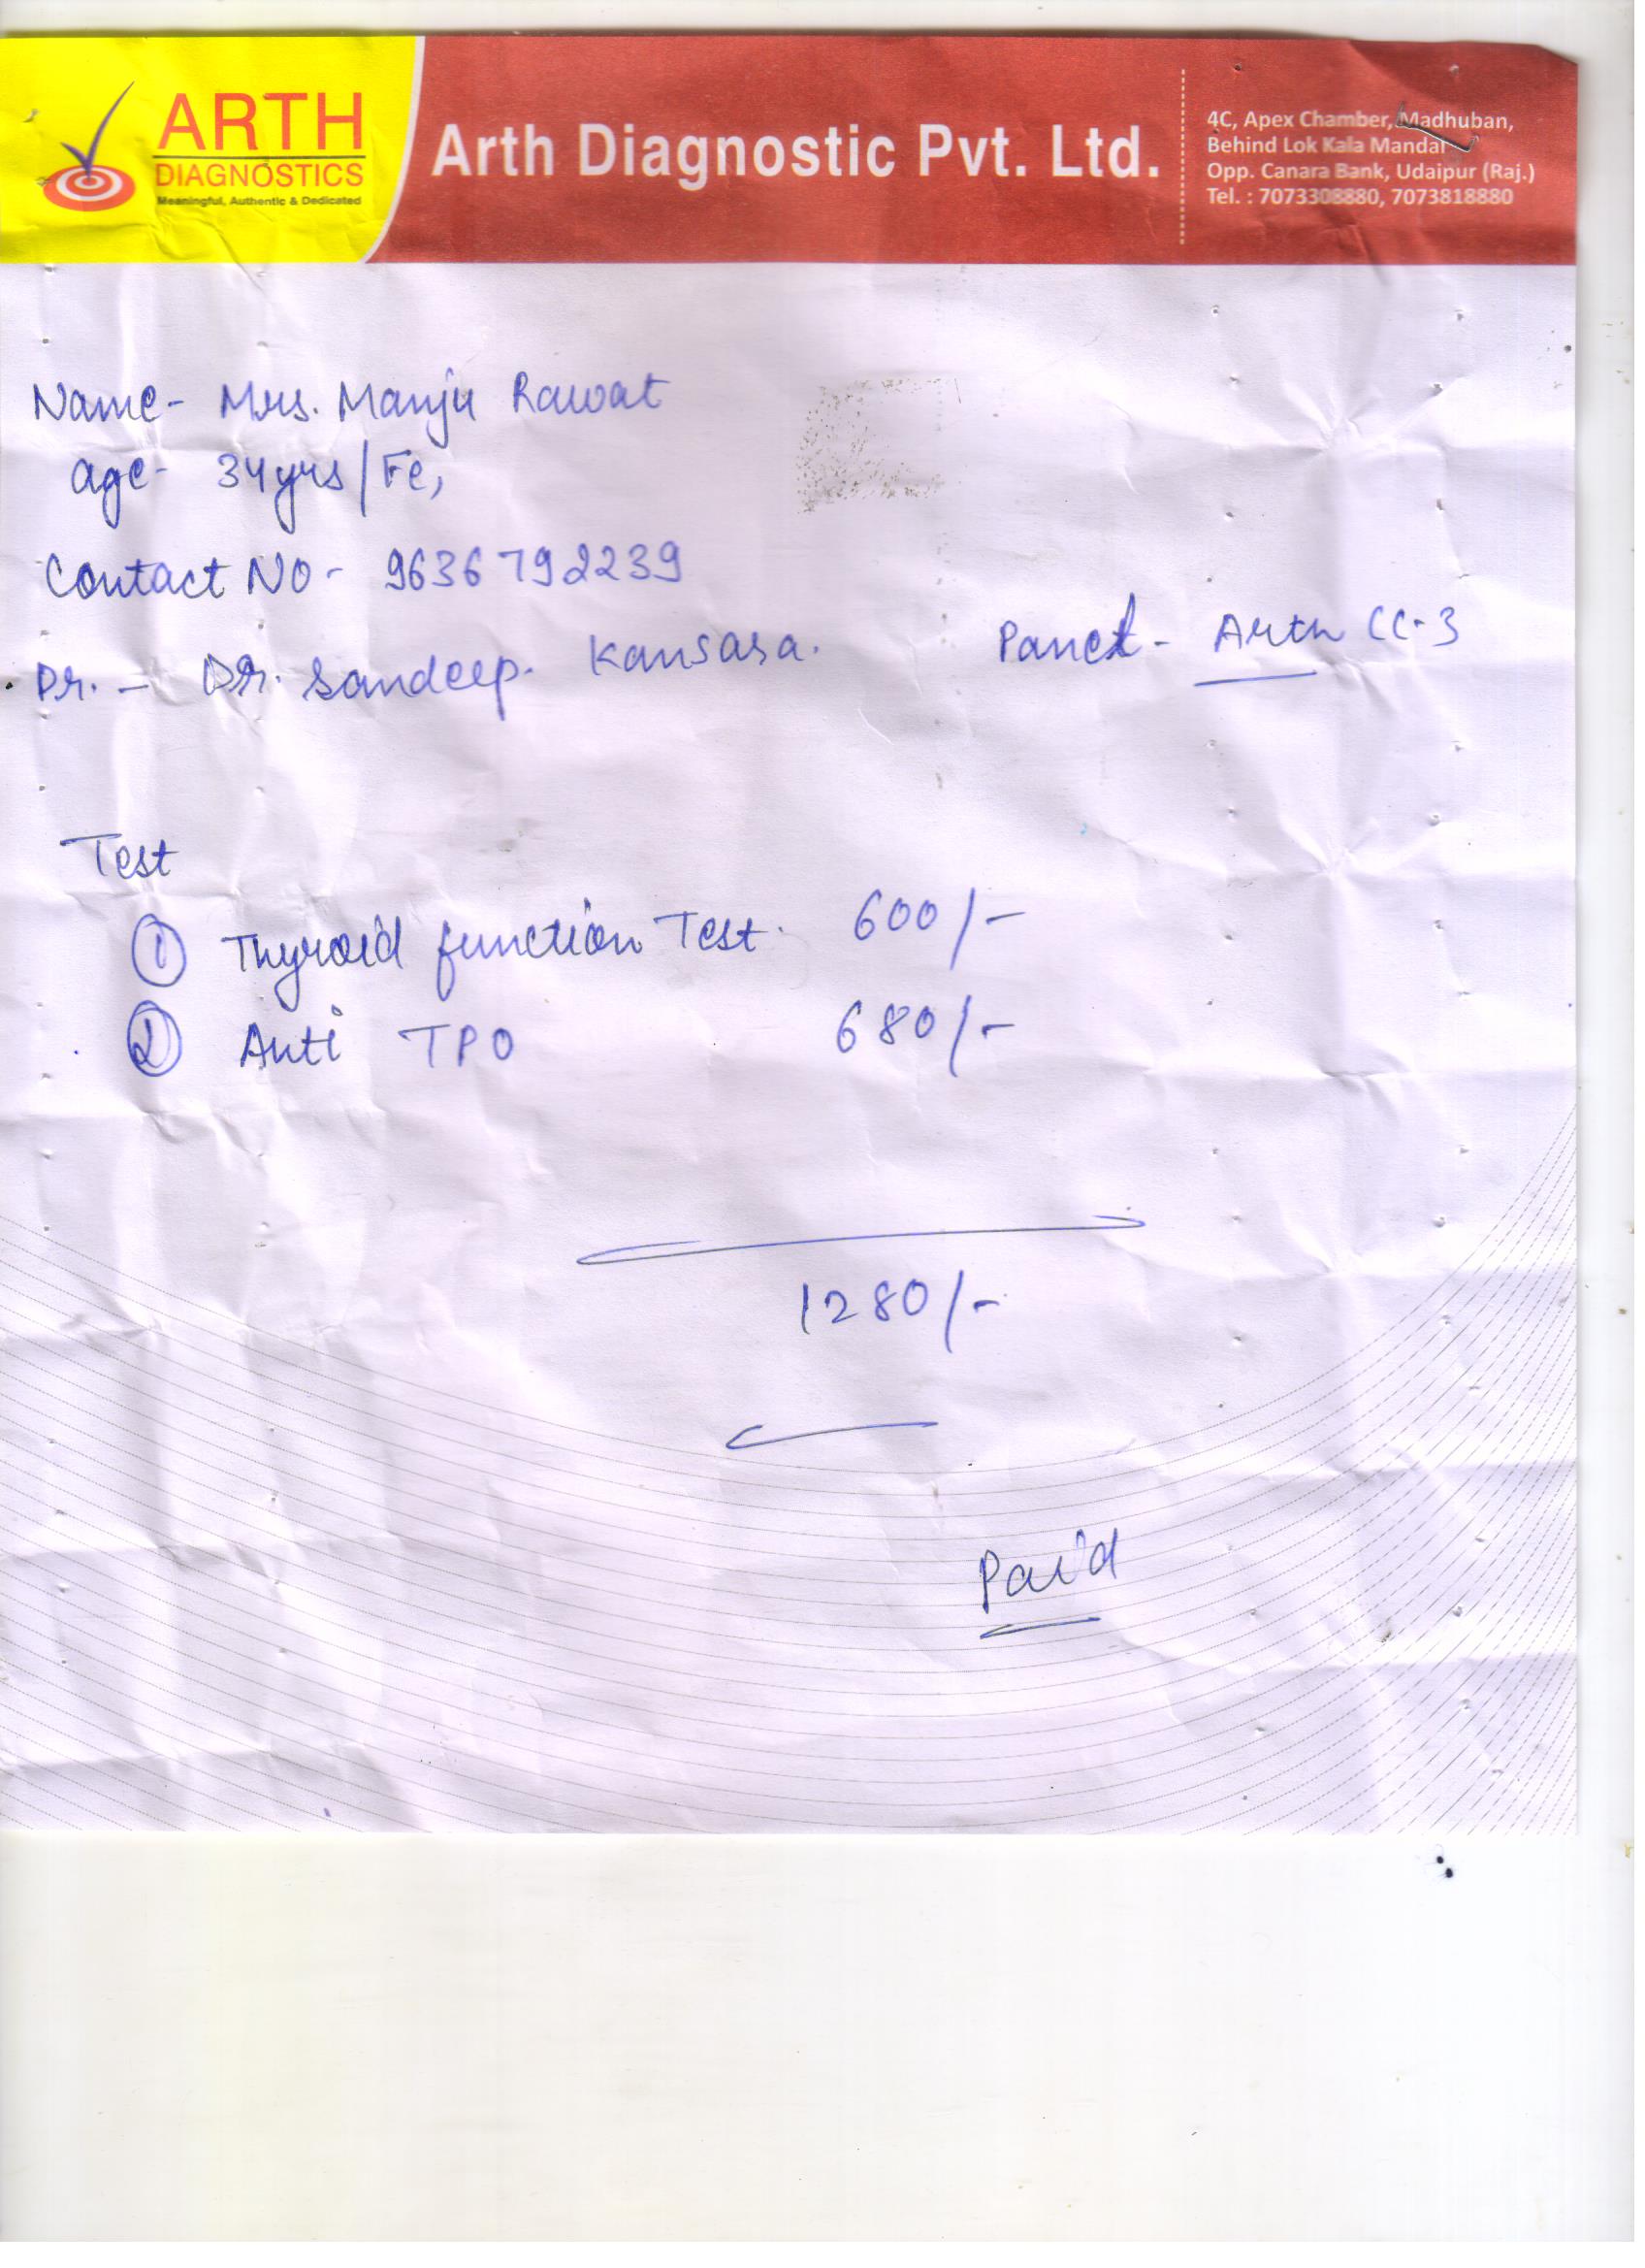 ARTH
DIAGNOSTICS
Meaningful, Authentic & Dedicated
Arth Diagnostic Pvt. Ltd.
4C, Apex Chamber, Madhuban,
Behind Lok Kala Mandal
Opp. Canara Bank, Udaipur (Raj.)
Tel. : 7073308880, 7073818880
Name- Mrs. Manju Rawat
age- 34yrs/Fe,
Contact NO- 9636792239
Dr. - Dr. Sandeep. Kansara.
Panel - Arth CC-3
Test
1 Thyroid function Test. 600/-
2 Anti TPO 680/-
1280/-
Paid